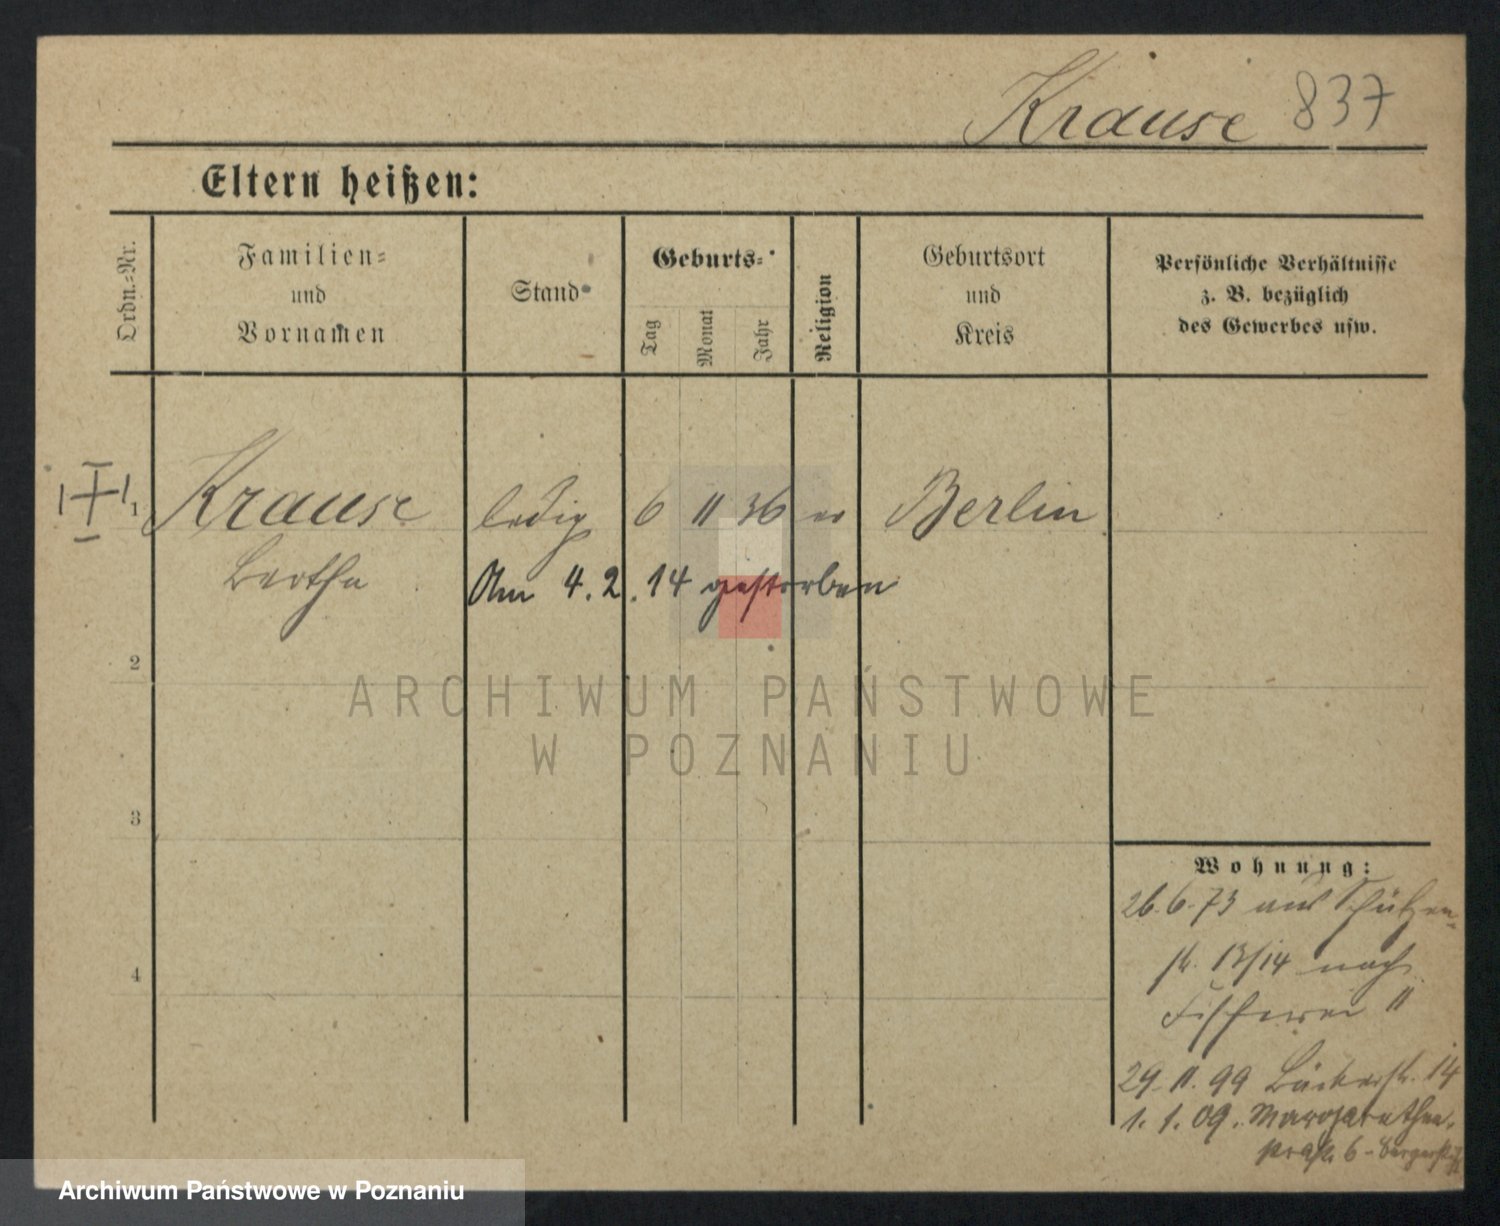 Krause 837
Eltern heißen:
Ordn.-Nr.
Familien-
und
Vornamen
Stand
Geburts-
Tag
Monat
Jahr
Religion
Geburtsort
und
Kreis
Persönliche Verhältnisse
z. B. bezüglich
des Gewerbes usw.
1 Krause ledig 6 11 36 ev Berlin
Bertha Am 4.2.14 gestorben
2
3
4
Wohnung:
26.6.73 aus Schützen-
str. 13/14 nach
Fischerei 11
29.11.99 Bäckerstr. 14
1.1.09. Margarethen-
straße 6 - Bürgerstift
ARCHIWUM PAŃSTWOWE
W POZNANIU
Archiwum Państwowe w Poznaniu